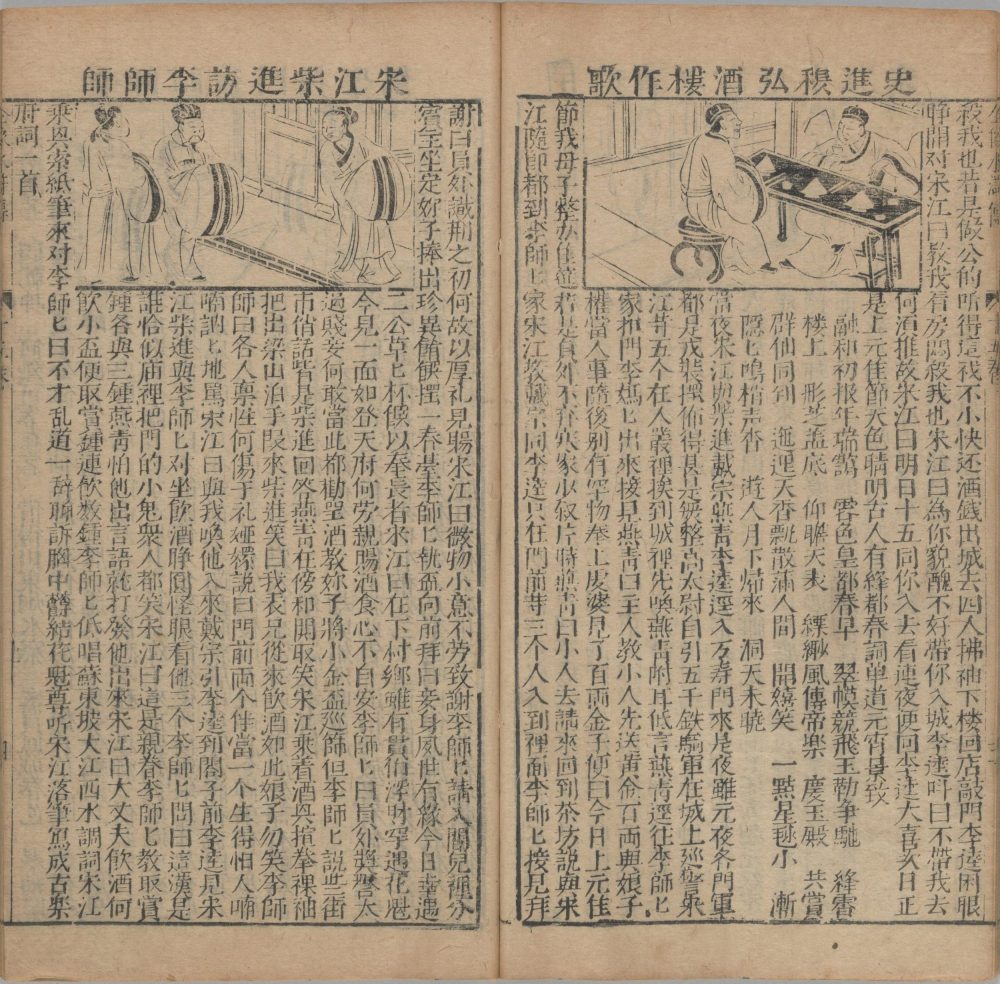 史進穆弘酒樓作歌
殺我也若是做公的听得這找不小快还酒錢出城去四人拂袖下楼回店敲門李逵困眼
睁開对宋江曰教我看房悶殺我也宋江曰為你貌醜不好帶你入城李逵叫曰不帶我去
何須推故宋江曰明日十五同你入去看連夜便回李逵大喜次日正
是上元佳節天色晴明古人有絳都春詞单道元宵景致
融和初报年瑞藹 霽色皇都春早 翠幙競飛玉勒争馳 絳霄
楼上 彤芝盖底 仰聸天表 縹緲風傳帝樂 慶玉殿 共賞
群仙同到 迤逦天香飄散滿人間 開嬉笑 一點星毬小 漸
隱匕鳴梢声杳 遊人月下歸來 洞天未曉
當夜宋江與柴進戴宗燕青李逵逕入万寿門來是夜雖元夜各門軍
都是戎裝擺佈得甚是嚴整高太尉自引五千鉄騎軍在城上巡警宋
江䓁五个在人叢裡挨到城裡先喚燕青附耳低言燕青逕往李師匕
家扣門李媽匕出來接見燕青曰主人教小人先送黄金百両與娘子
權當人事隨後別有罕物奉上虔婆見了百両金子便曰今日上元佳
節我母子整办佳筵若是員外不弃寒家小叙片時燕青曰小人去請來回到茶坊説與宋
江隨即都到李師匕家宋江教戴宗同李逵只在門前等三个人入到裡面李師匕接見拜
宋江柴進訪李師師
謝曰員外識荆之初何故以厚礼見賜宋江曰微物小意不劳致謝李師匕請入閣兒裡分
賓主坐定妳子捧出珍異餚饌擺一春臺李師匕執盃向前拜曰妾身夙世有緣今日幸遇
二公草匕杯饌以奉長者宋江曰在下村鄉雖有貫伯浮財罕遇花魁
今見一面如登天府何劳親賜酒食心不自安李師匕曰員外奬譽太
過賤妾何敢當此都勸罷酒教妳子將小金盃巡篩但李師匕説些街
市俏話皆是柴進回答燕青在傍和閧取笑宋江乘着酒興揎拳裸袖
把出梁山泊手段來柴進笑曰我表兄從來飲酒如此娘子勿笑李師
師曰各人禀性何傷于礼婭嬛説曰門前両个伴當一个生得怕人喃
喃訥匕地罵宋江曰與我喚他入來戴宗引李逵到閣子前李逵見宋
江柴進與李師匕对坐飲酒睁圓怪眼看他三个李師匕問曰這漢是
誰恰似庙裡把門的小鬼衆人都笑宋江曰這是親眷李師匕教取賞
鍾各與三鍾燕青怕他出言語就打癸他出來宋江曰大丈夫飲酒何
飲小盃便取賞鍾連飲数鍾李師匕低唱蘇東坡大江西水調詞宋江
乘興索紙筆來对李師匕曰不才乱道一辞聊訴胸中欝結花魁尊听宋江落筆寫成古樂
府詞一首